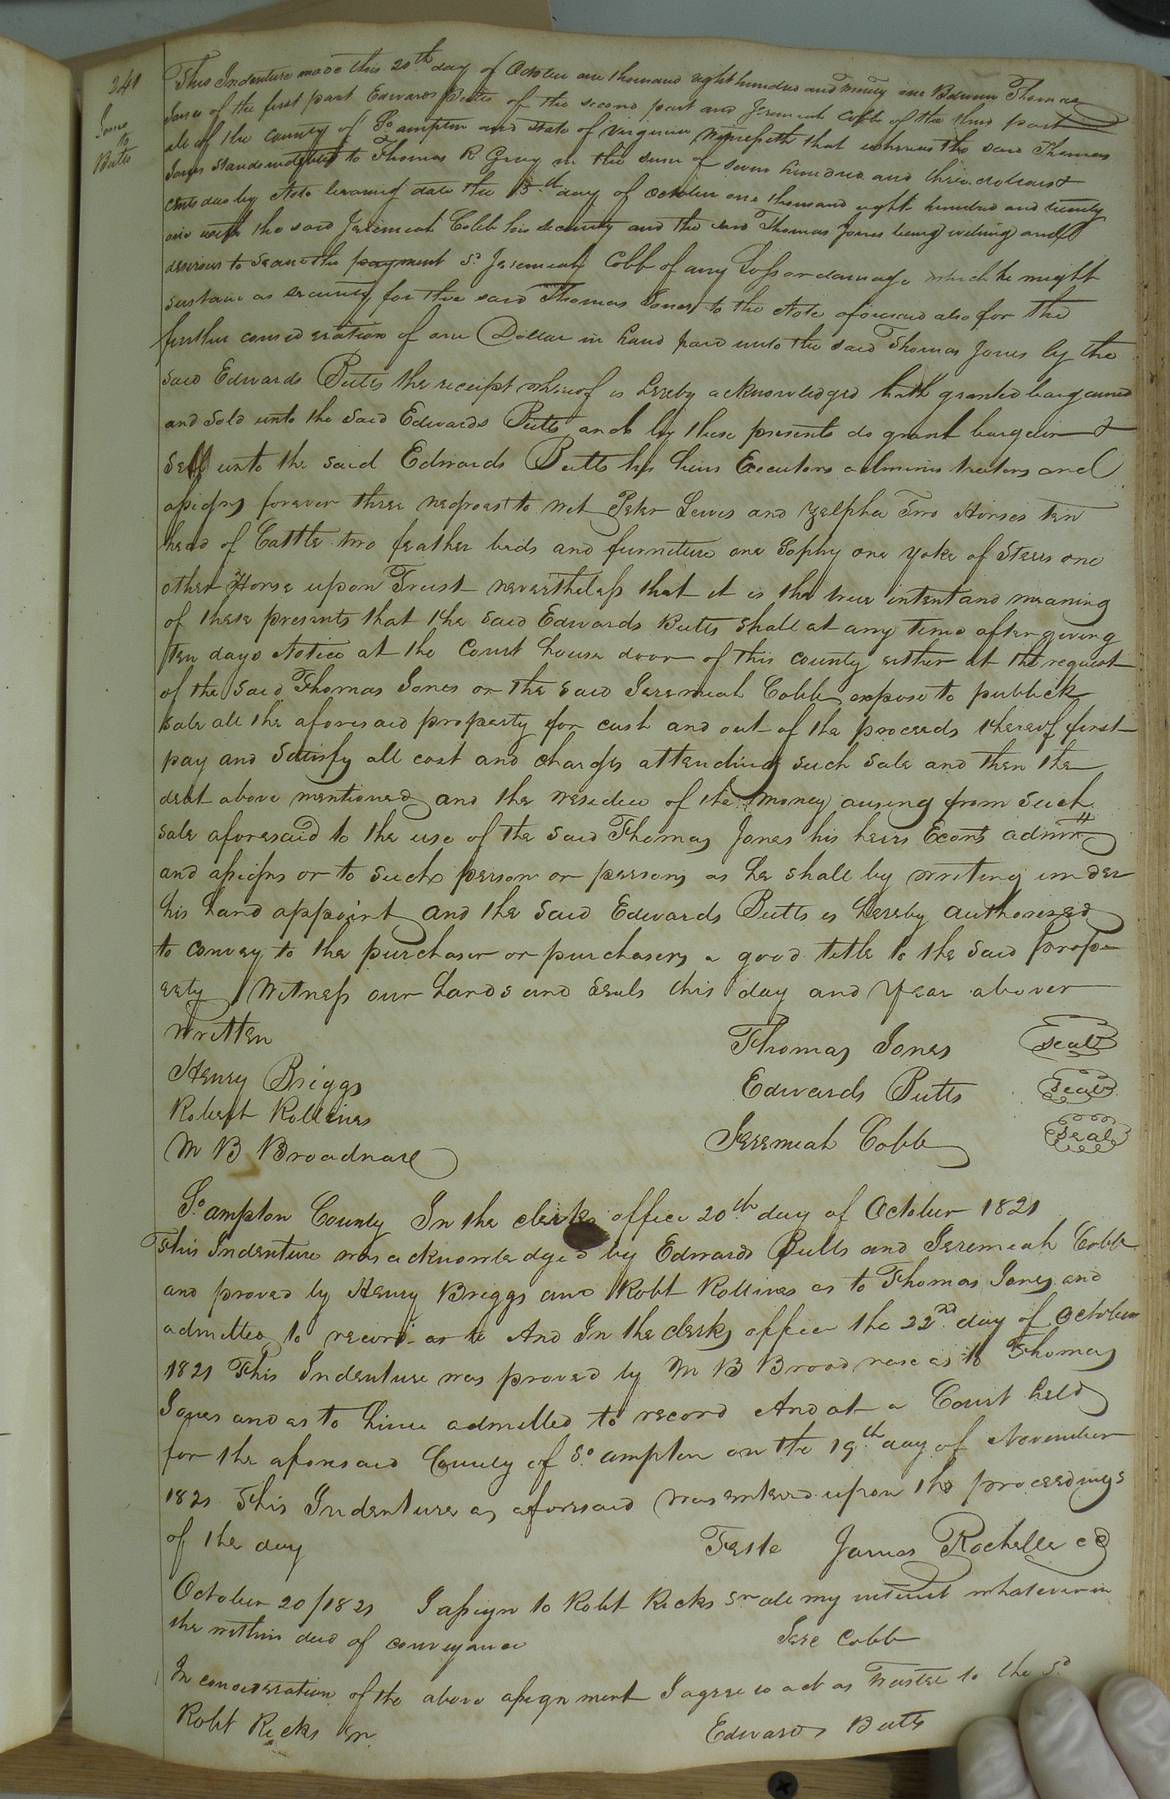 241
Jones
to
Butts
This Indenture made this 20th day of October one thousand eight hundred and twenty one Between Thomas
Jones of the first part Edwards Butts of the second part and Jeremiah Cobb of the third part
all of the County of So ampton and state of Virginia Witnesseth that whereas the said Thomas
Jones stands indebted to Thomas R Gray in the sum of seven hundred and three dollars &
cents due by Note bearing date the 15th day of October one thousand eight hundred and twenty
one with the said Jeremiah Cobb his security and the said Thomas Jones being willing and
desirous to secure the payment sd Jeremiah Cobb of any loss or damage which he might
sustain as security for the said Thomas Jones to the Note aforesaid also for the
further consideration of one Dollar in hand paid unto the said Thomas Jones by the
said Edwards Butts the receipt whereof is hereby acknowledged hath granted bargained
and sold unto the said Edwards Butts and by these presents do grant bargain &
sell unto the said Edwards Butts his heirs Executors administrators and
assigns forever three negroes to wit Peter Lewis and Zelpha Two Horses ten
head of Cattle two feather beds and furniture one Sophy one yoke of Steers one
other Horse upon Trust nevertheless that it is the true intent and meaning
of these presents that the said Edwards Butts shall at any time after giving
ten days Notice at the Court house door of this county either at the request
of the said Thomas Jones or the said Jeremiah Cobb expose to publick
sale all the aforesaid property for cash and out of the proceeds thereof first
pay and satisfy all cost and charges attending such sale and then the
debt above mentioned and the residue of the money arising from such
sale aforesaid to the use of the said Thomas Jones his heirs Exors admrs
and assigns or to such person or persons as he shall by writing under
his hand appoint and the said Edwards Butts is hereby authorised
to convey to the purchaser or purchasers a good title to the said prop
erty Witness our hands and seals this day and year above
written
Thomas Jones seal
Henry Briggs
Edwards Butts seal
Robert Rollines
Jeremiah Cobb seal
M B Broadnax
So ampton County In the clerks office 20th day of October 1821
This Indenture was acknowledged by Edwards Butts and Jeremiah Cobb
and proved by Henry Briggs and Robt Rollines as to Thomas Jones and
admitted to record as to And In the clerks office the 22nd day of October
1821 This Indenture was proved by M B Broadnax as to Thomas
Jones and as to him admitted to record And at a Court held
for the aforesaid County of So ampton on the 19th day of November
1821 This Indenture as aforesaid was entered upon the proceedings
of the day
Teste James Rochelle cc
October 20/1821 I assign to Robt Ricks Snr all my interest whatever in
the within deed of conveyance
Jere Cobb
In consideration of the above assignment I agree to act as Trustee to the sd
Robt Ricks Sn.
Edwards Butts